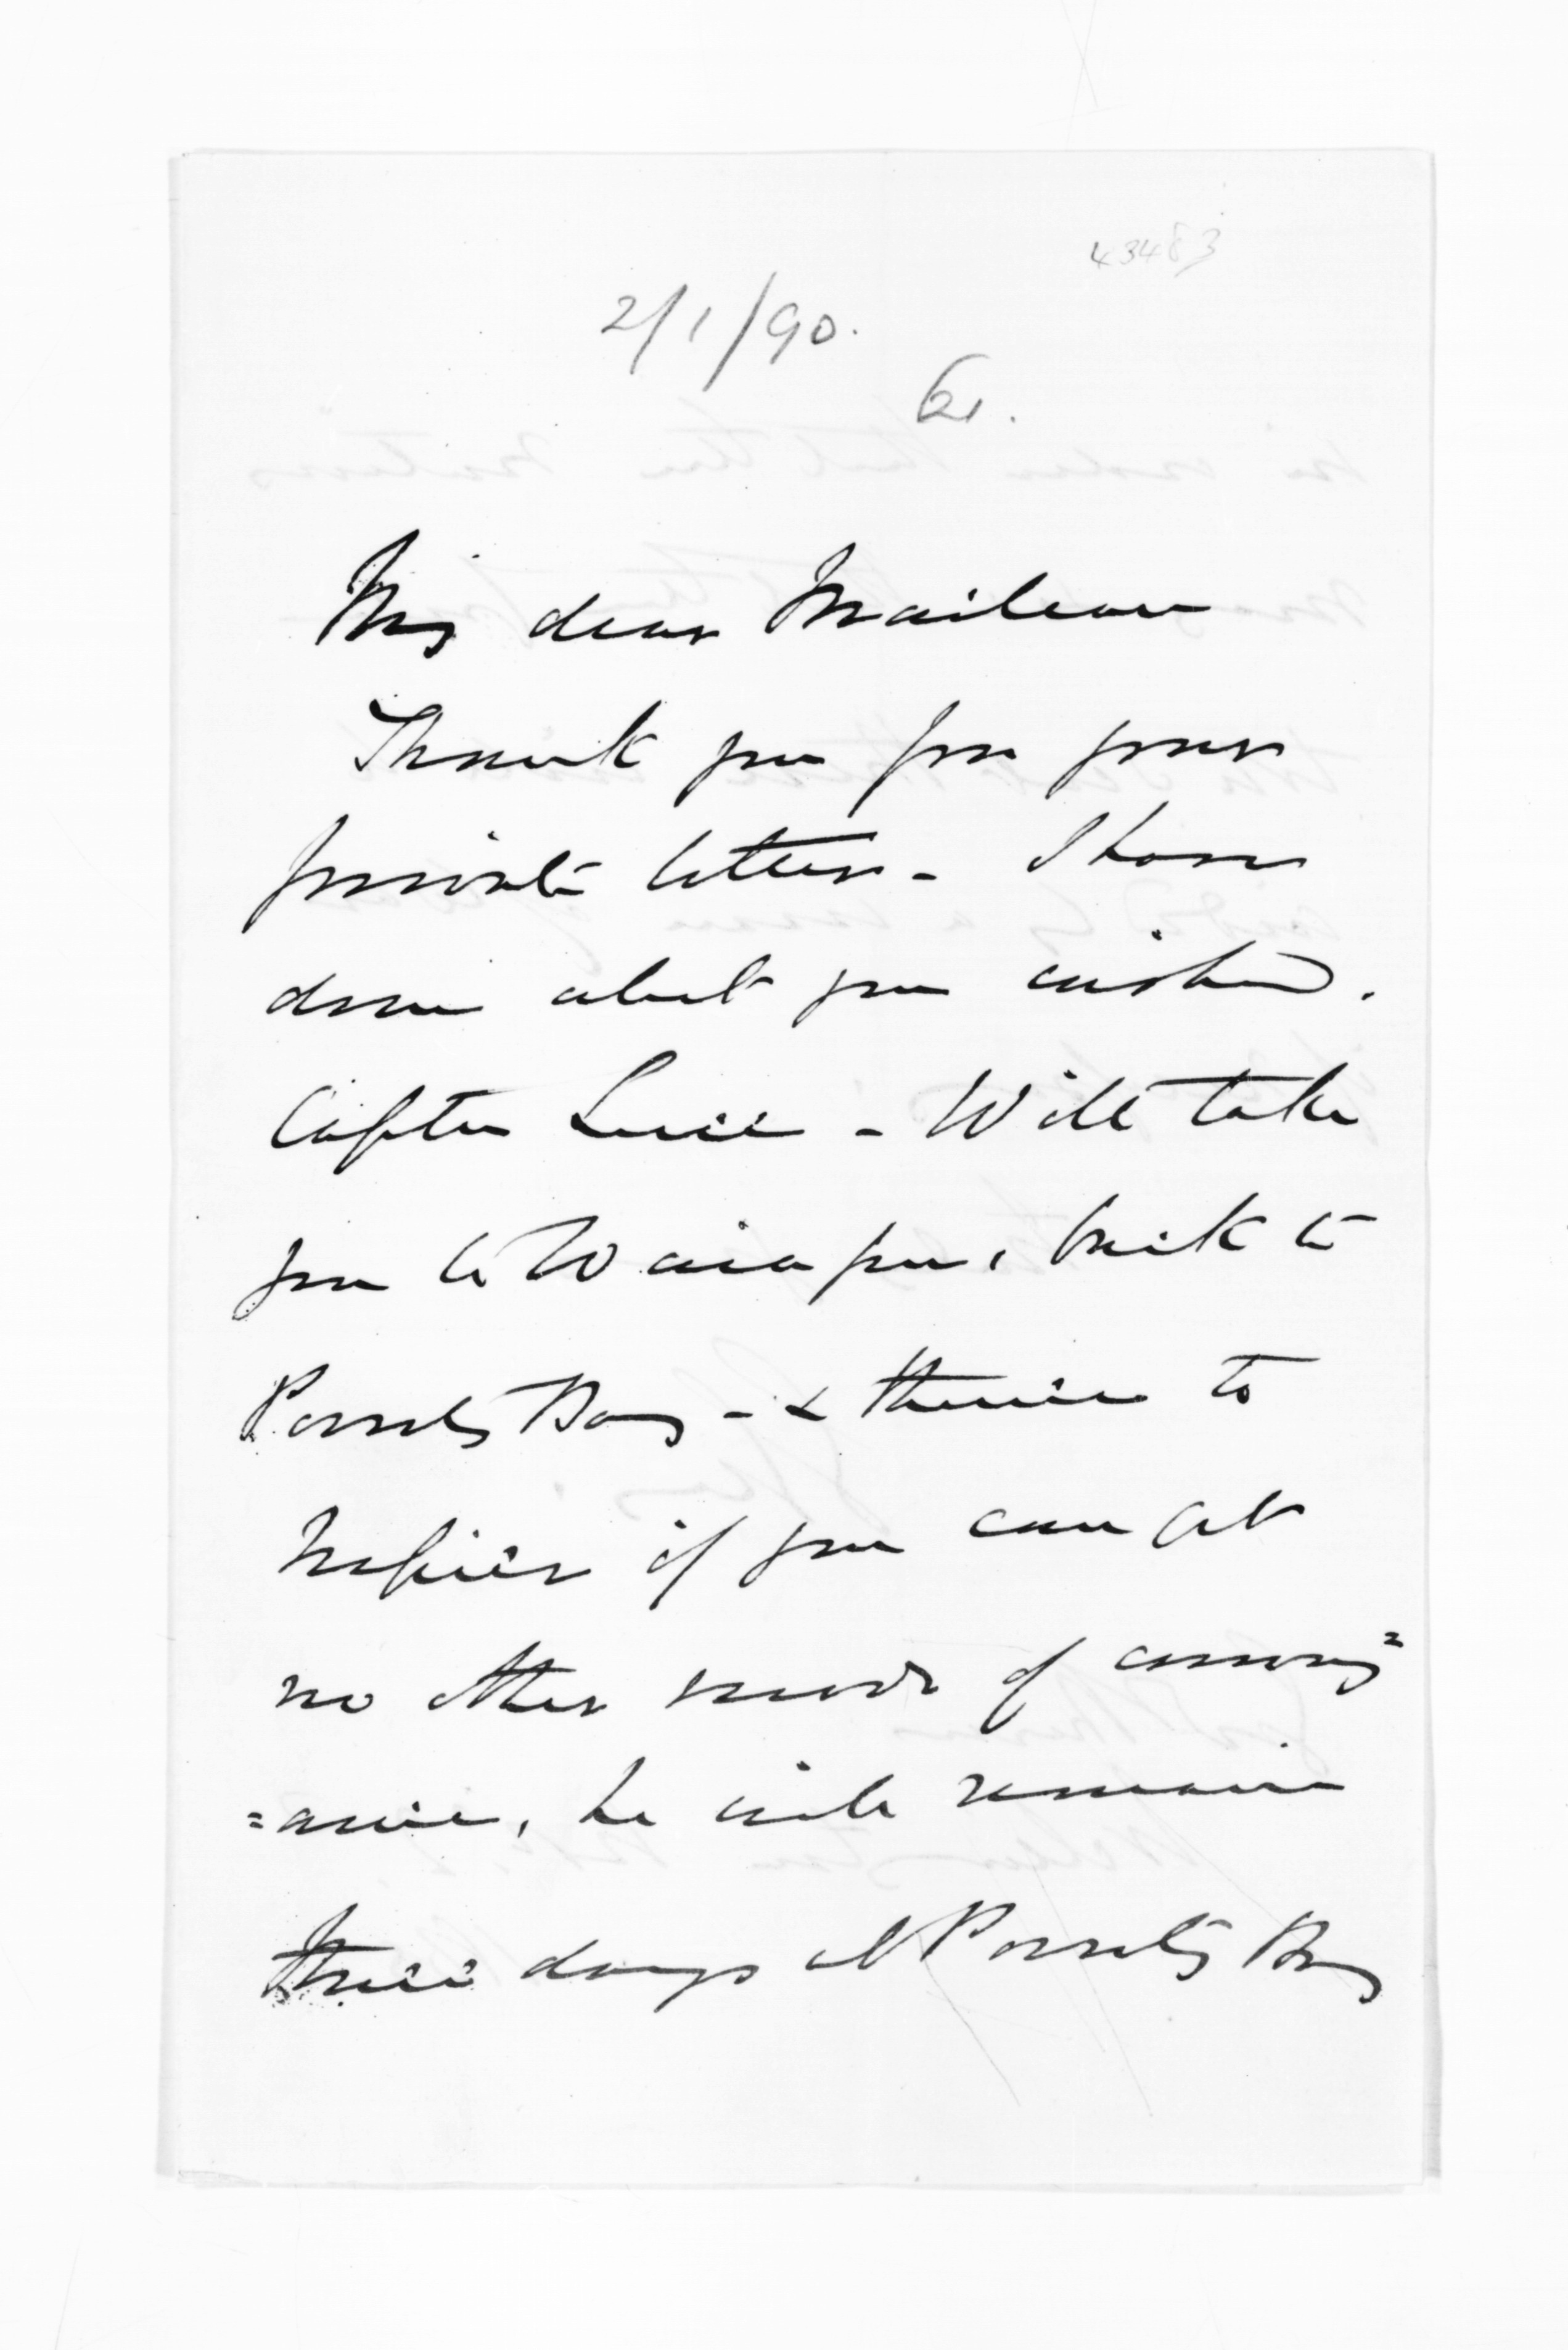 43483
2/1/90.
61.
My dear Maclean
Thank you for your
private letter - I have
done what you wished.
Capten Luce - Will take
you to Waiapu, back to
Poverty Bay - & thence to
Napier if you can get
no other mode of convey=
=ance, he will remain
three days at Poverty Bay